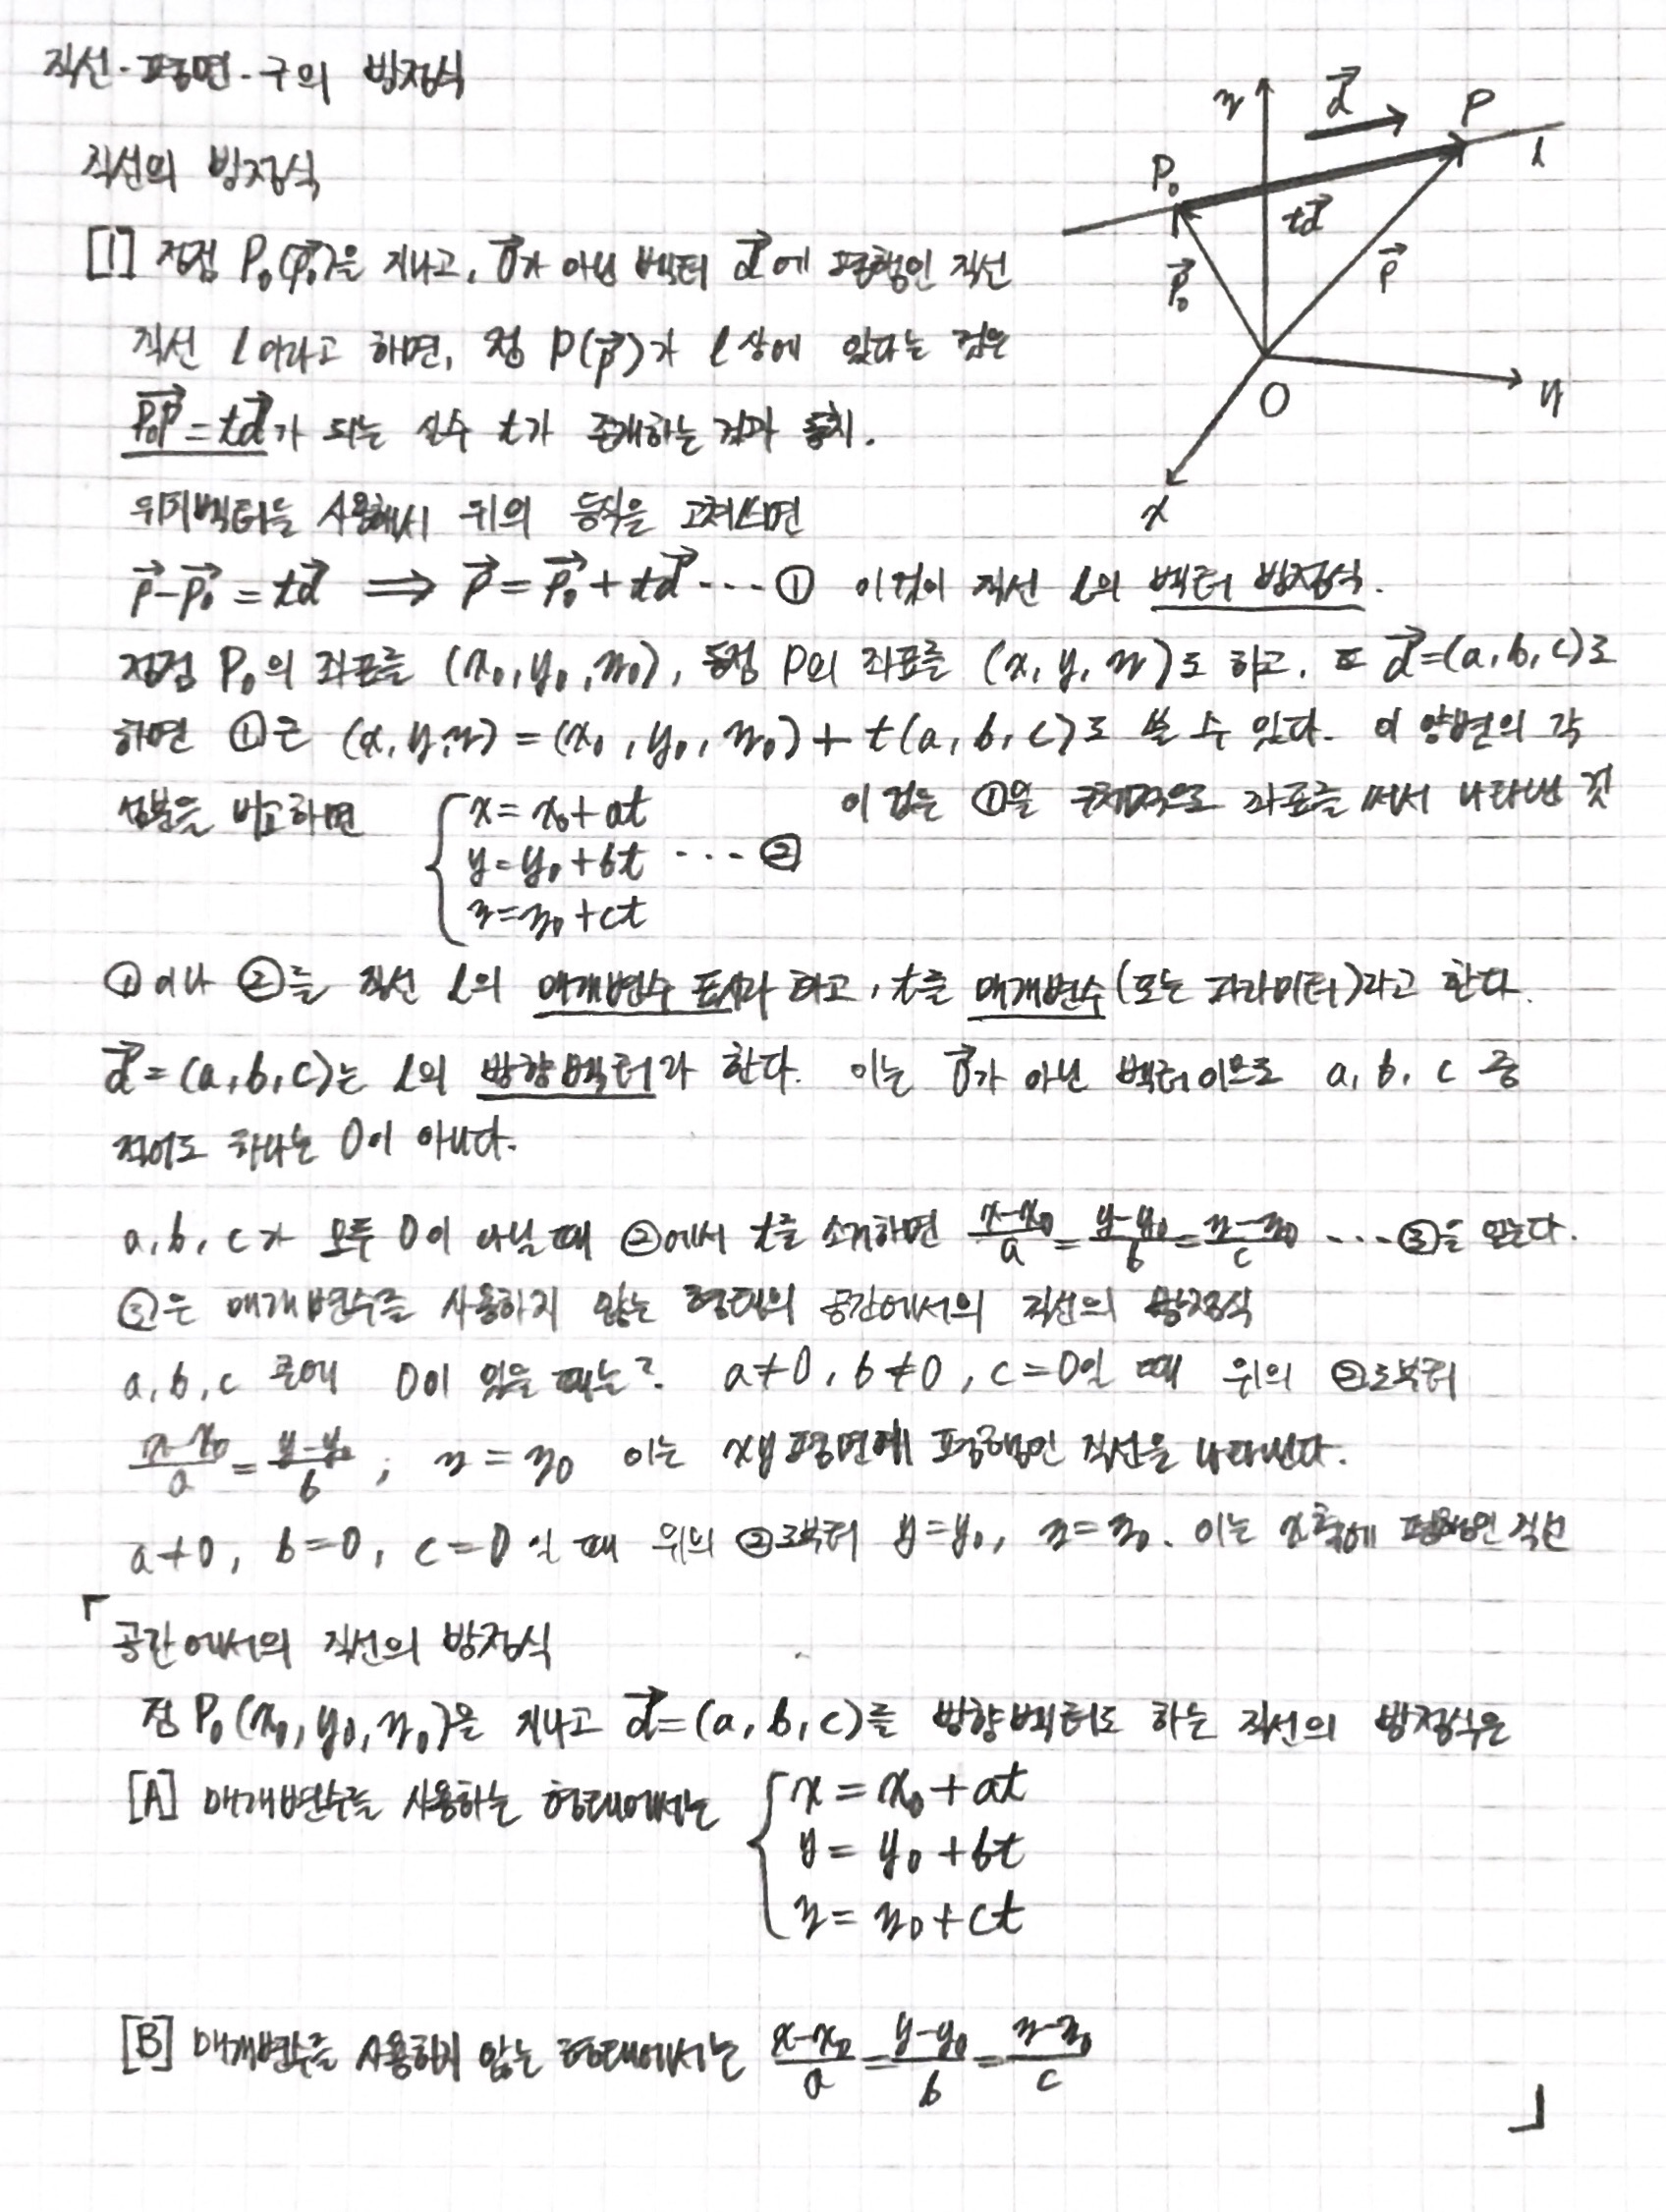 직선·평면·구의 방정식
직선의 방정식
[1] 정점 P₀(p₀⃗)을 지나고, 0⃗가 아닌 벡터 d⃗에 평행인 직선
직선 l이라고 하면, 점 P(p⃗)가 l상에 있다는 것은
P₀P⃗ = td⃗가 되는 실수 t가 존재하는 것과 동치.
위치벡터를 사용해서 위의 등식을 고쳐쓰면
p⃗ - p₀⃗ = td⃗ ⟹ p⃗ = p₀⃗ + td⃗ ···· ① 이것이 직선 l의 벡터 방정식.
정점 P₀의 좌표를 (x₀, y₀, z₀), 동점 P의 좌표를 (x, y, z)로 하고, 또 d⃗=(a, b, c)로
하면 ①은 (x, y, z) = (x₀, y₀, z₀) + t(a, b, c)로 쓸 수 있다. 이 양변의 각
성분을 비교하면 이 것은 ①을 구체적으로 좌표를 써서 나타낸 것
x = x₀ + at
y = y₀ + bt ···· ②
z = z₀ + ct
①이나 ②를 직선 l의 매개변수 표시라 하고, t를 매개변수(또는 파라미터)라고 한다.
d⃗ = (a, b, c)는 l의 방향벡터라 한다. 이는 0⃗가 아닌 벡터이므로 a, b, c 중
적어도 하나는 0이 아니다.
a, b, c가 모두 0이 아닐 때 ②에서 t를 소거하면 (x-x₀)/a = (y-y₀)/b = (z-z₀)/c ···· ③을 얻는다.
③은 매개변수를 사용하지 않는 형태의 공간에서의 직선의 방정식
a, b, c 중에 0이 있을 때는? a≠0, b≠0, c=0일 때 위의 ②로부터
(x-x₀)/a = (y-y₀)/b ; z = z₀ 이는 xy평면에 평행인 직선을 나타낸다.
a≠0, b=0, c=0일 때 위의 ②로부터 y=y₀, z=z₀. 이는 x축에 평행인 직선
「공간에서의 직선의 방정식
점 P₀(x₀, y₀, z₀)을 지나고 d⃗=(a, b, c)를 방향벡터로 하는 직선의 방정식은
[A] 매개변수를 사용하는 형태에서는
x = x₀ + at
y = y₀ + bt
z = z₀ + ct
[B] 매개변수를 사용하지 않는 형태에서는 (x-x₀)/a = (y-y₀)/b = (z-z₀)/c
」
z
d⃗
P
l
P₀
td⃗
p₀⃗
p⃗
O
y
x